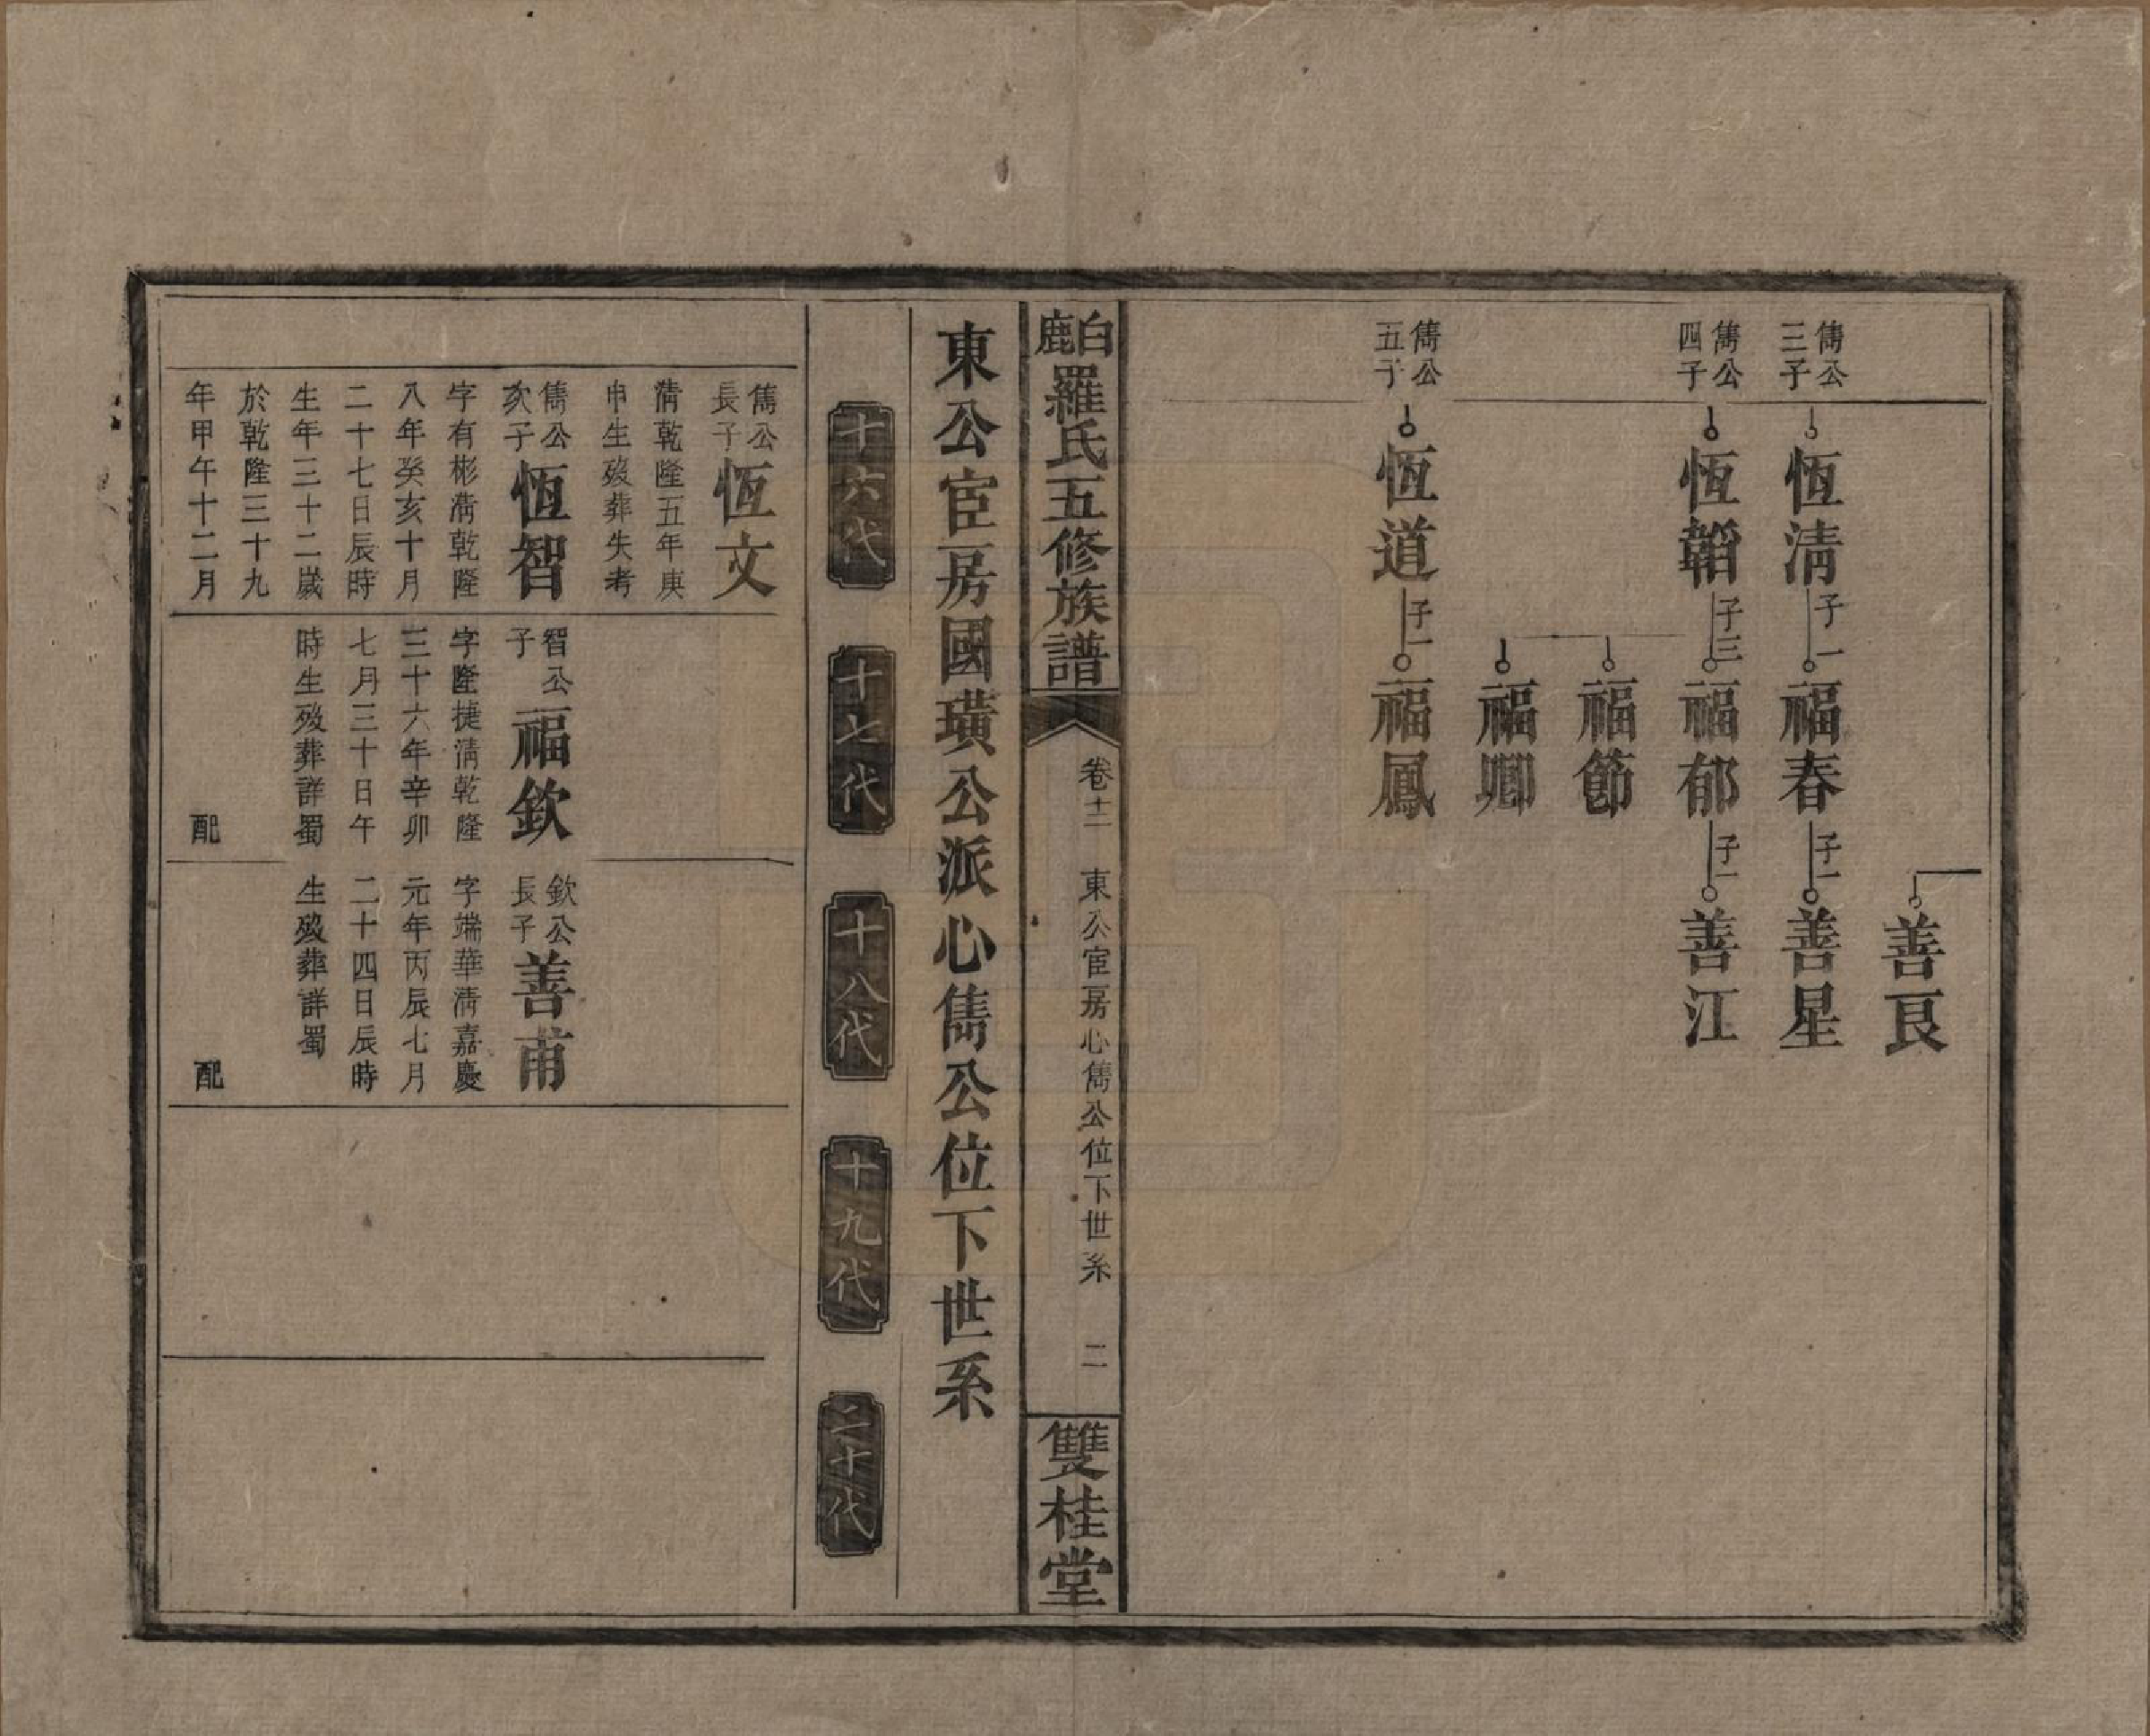 善艮
雋公三子
恆清
子一
福春
子一
善星
雋公四子
恆韜
子三
福郁
子一
善江
福節
福卿
雋公五子
恆道
子一
福鳳
白鹿羅氏五修族譜
卷十二
東公宦房心雋公位下世系
二
雙桂堂
東公宦房國璜公派心雋公位下世系
十六代
十七代
十八代
十九代
二十代
雋公長子
恆文
清乾隆五年庚
申生歿葬失考
雋公次子
恆智
字有彬清乾隆
八年癸亥十月
二十七日辰時
生年三十二歲
於乾隆三十九
年甲午十二月
智公子
福欽
字隆捷清乾隆
三十六年辛卯
七月三十日午
時生歿葬詳蜀
配
欽公長子
善甫
字端華清嘉慶
元年丙辰七月
二十四日辰時
生歿葬詳蜀
配